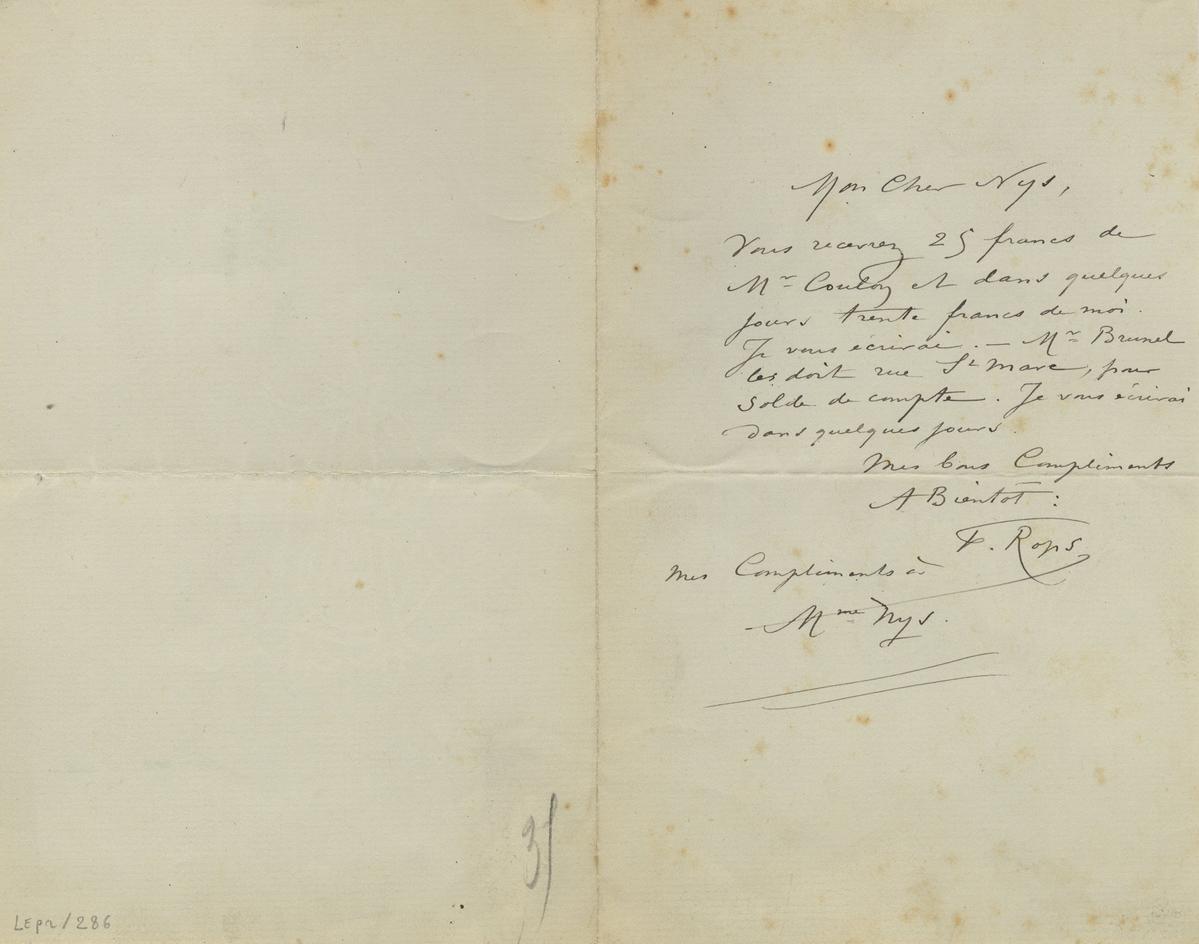 Mon Cher Nys,
Vous recevrez 25 francs de
Mr Coulon et dans quelques
jours trente francs de moi.
Je vous écrirai. — Mr Brunel
les doit rue St Marc, pour
solde de compte. Je vous écrirai
dans quelques jours.
Mes bons Compliments
A Bientôt :
F. Rops
Mes Compliments à
Mme Nys.
LEpr/286